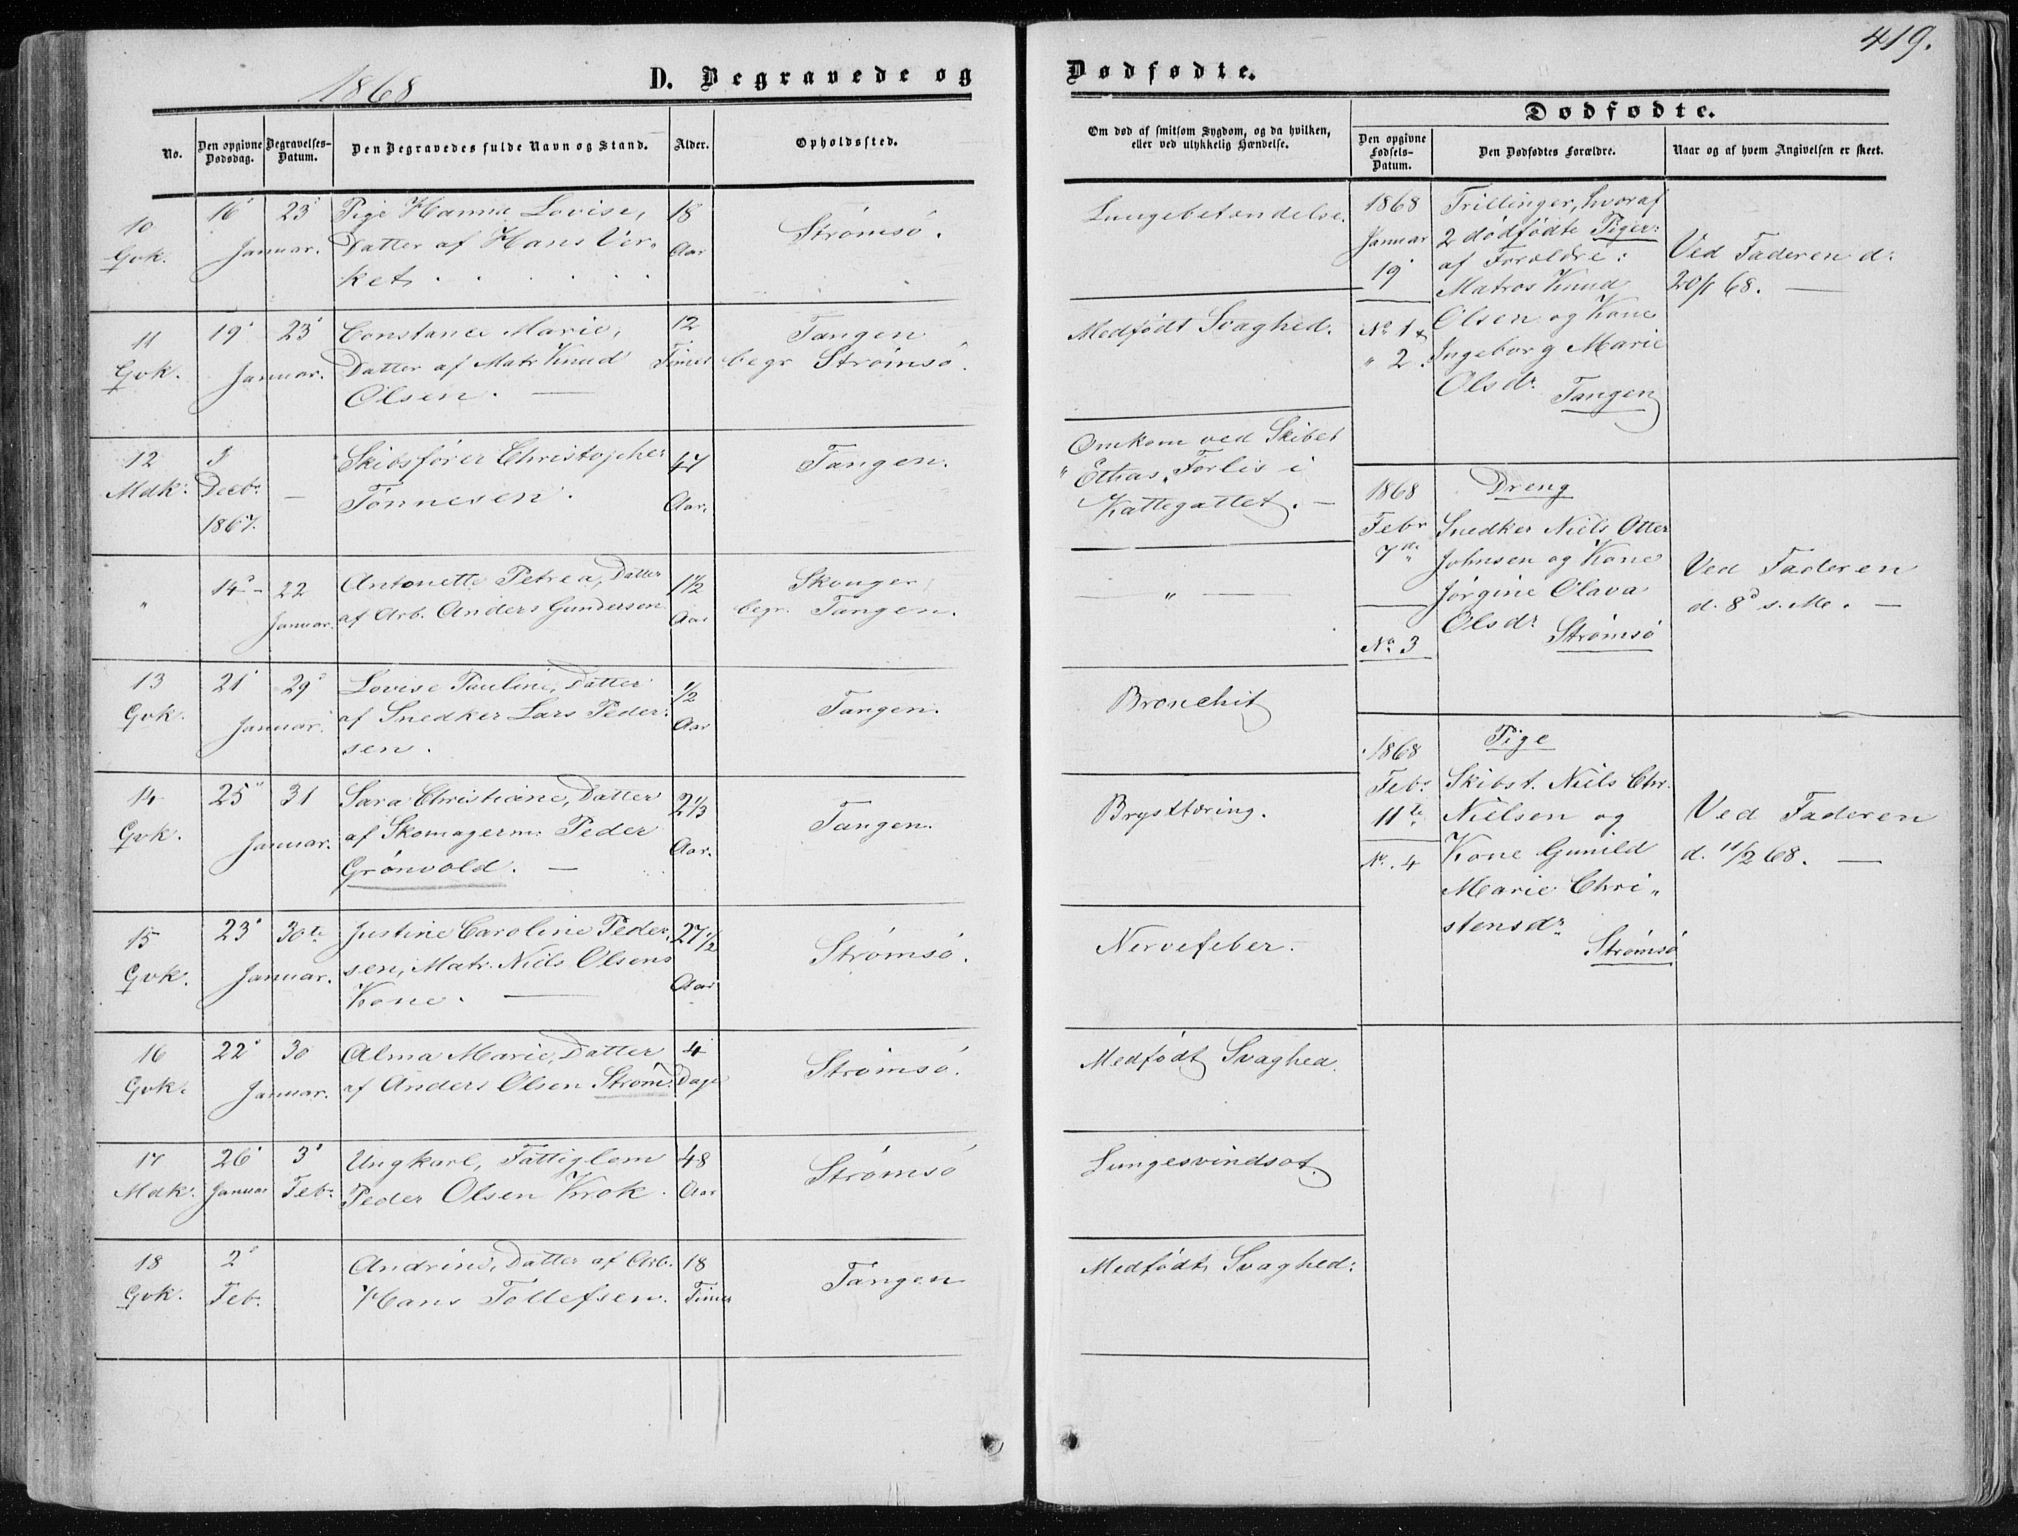 419.
1868
D. Begravede og Dødfødte.
No.
Den opgivne Dødsdag.
Begravelses-Datum.
Den Begravedes fulde Navn og Stand.
Alder.
Opholdssted.
Om død af smitsom Sygdom, og da hvilken,
eller ved ulykkelig Hændelse.
Dødfødte.
Den opgivne
Fødsels-
Datum.
Den Dødfødtes Forældre.
Naar og af hvem Angivelsen er skeet.
10 16 23 Pige Hanna Lovise, 18 Strømsø. Lungebetændelse.
Gvk. Januar. Datter af Hans Ver- Aar
ket.
11 19 23 Constance Marie, 12 Tangen Medfødt Svaghed.
Gvk. Januar. Datter af Matr Knud Timer begr Strømsø.
Olsen. —
12 3 Skibsfører Christopher 47 Tangen. Omkom ved Skibet
Mdk. Decbr. — Tønnesen. Aar. Forlis i
1867. Kattegattet. —
" 14 - 22 Antonette Petrea, Datter 1 1/2 Skouger — " —
Januar. af Arb. Anders Gundersen Aar begr. Tangen.
13 21 29 Lovise Pauline, Datter 1/2 Tangen. Bronchit
Gvk. Januar. af Snedker Lars Peder- Aar
sen.
14 25 31 Sara Christiane, Datter 2 1/3 Tangen. Brysttæring.
Gvk. Januar. af Skomagerm. Peder Aar.
Grønvold. —
15 23 30te Justine Caroline Peder- 27 1/2 Strømsø. Nervefeber.
Gvk. Januar. sen, Matr. Niels Olsens Aar
Kone. —
16 22 30 Alma Marie, Datter 4 Strømsø. Medfødt Svaghed.
Gvk. Januar. af Anders Olsen Strøm. Dage
17 26 3 Ungkarl, Fattiglem 48 Strømsø Lungesvindsot.
Mdk. Januar Feb. Peder Olsen Krok. Aar
18 2 Andrine, Datter af Arb. 18 Tangen Medfødt Svaghed.
Gvk. Feb. Hans Tollefsen. Timer
1868 Trillinger, hvoraf
Januar 2 dødfødte Piger: Ved Faderen d:
19 af Forældre: 20/1 68. —
Matros Knud
No 1 & Olsen og Kone
" 2. Ingeborg Marie
Olsdr. Tangen
1868 Dreng
Febr Snedker Niels Otter
7de Johnsen og Kone Ved Faderen
Jørgine Olava d. 8d s. M. —
No 3 Olsdr. Strømsø
1868 Pige
Febr Skibst. Niels Chr.
11te Nielsen og Ved Faderen
No. 4 Kone Gunild d. 11/2 68. —
Marie Chri-
stensdr.
Strømsø